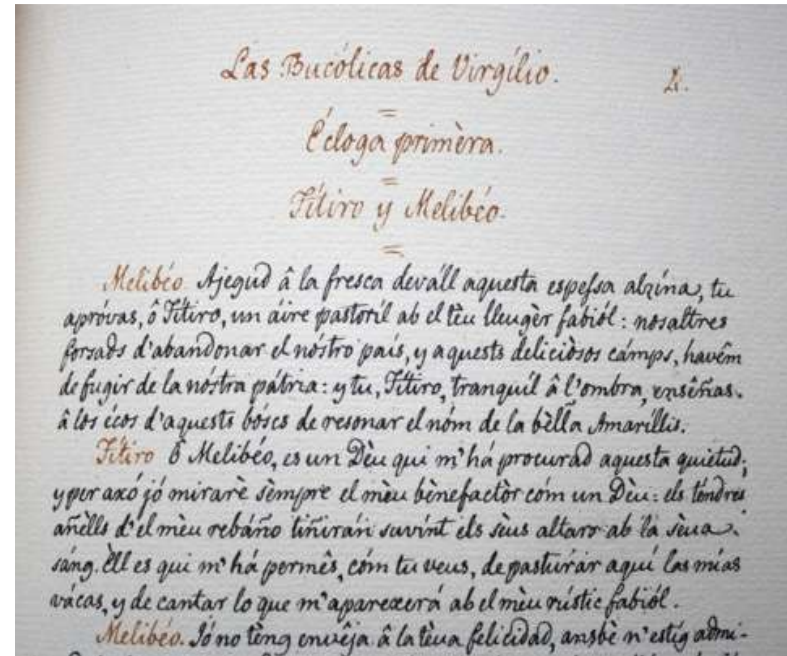 Las Bucólicas de Virgílio.
Écloga primèra.
Títiro y Melibéo.
Melibéo. Ajegud â la fresca devâll aquesta espessa alzína, tu
apróvas, ô Títiro, un áire pastoríl ab el tèu lleugèr fabiól: nosaltres
forsads d'abandonar el nóstro país, y aquests deliciósos cámps, havêm
de fugir de la nóstra pátria: y tu, Títiro, tranquíl â l'ombra, enséñas
â los écos d'aquests bóscs de resonar el nóm de la bèlla Amaríllis.
Títiro Ô Melibéo, es un Dèu qui m'há procurad aquesta quietud;
y per axó jó mirarè sèmpre el mèu bènefactòr cóm un Dèu: els téndres
añells d'el mèu rebáño tiñirán suvínt els sèus altars ab la sèua
sáng. Èll es qui m'há permês, cóm tu veus, de pasturár aquí las mías
vácas, y de cantar lo que m'aparexerá ab el mèu rústic fabiól.
Melibéo. Jó no tèng envêja â la tèua felicidad, ansbè n'estíg admi-